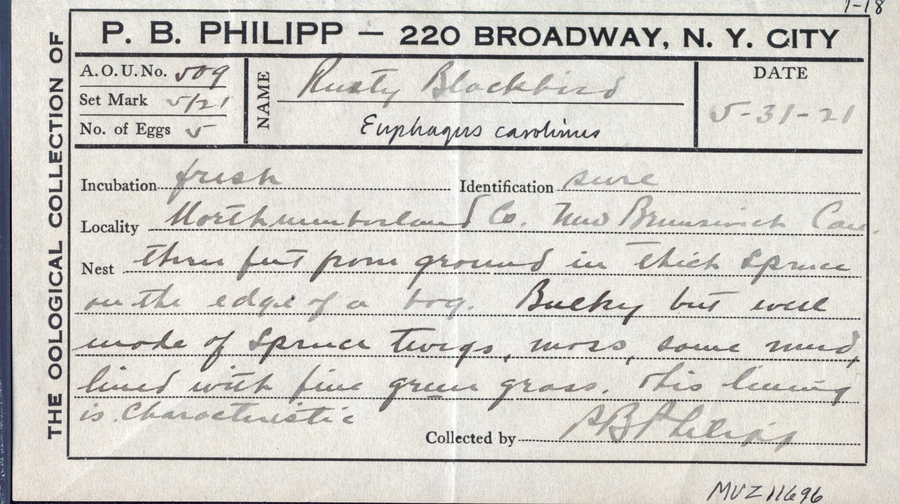 1-18
THE OOLOGICAL COLLECTION OF
P. B. PHILIPP — 220 BROADWAY, N. Y. CITY
A.O.U. No. 509
Set Mark 5/21
No. of Eggs 5
NAME Rusty Blackbird
Euphagus carolinus
DATE
5-31-21
Incubation fresh Identification sure
Locality Northumberland Co. New Brunswick Can.
Nest three feet from ground in thick spruce
on the edge of a bog. Bulky but well
made of spruce twigs, moss, some mud,
lined with fine green grass. This lining
is characteristic
Collected by P B Philipp
MVZ 11696